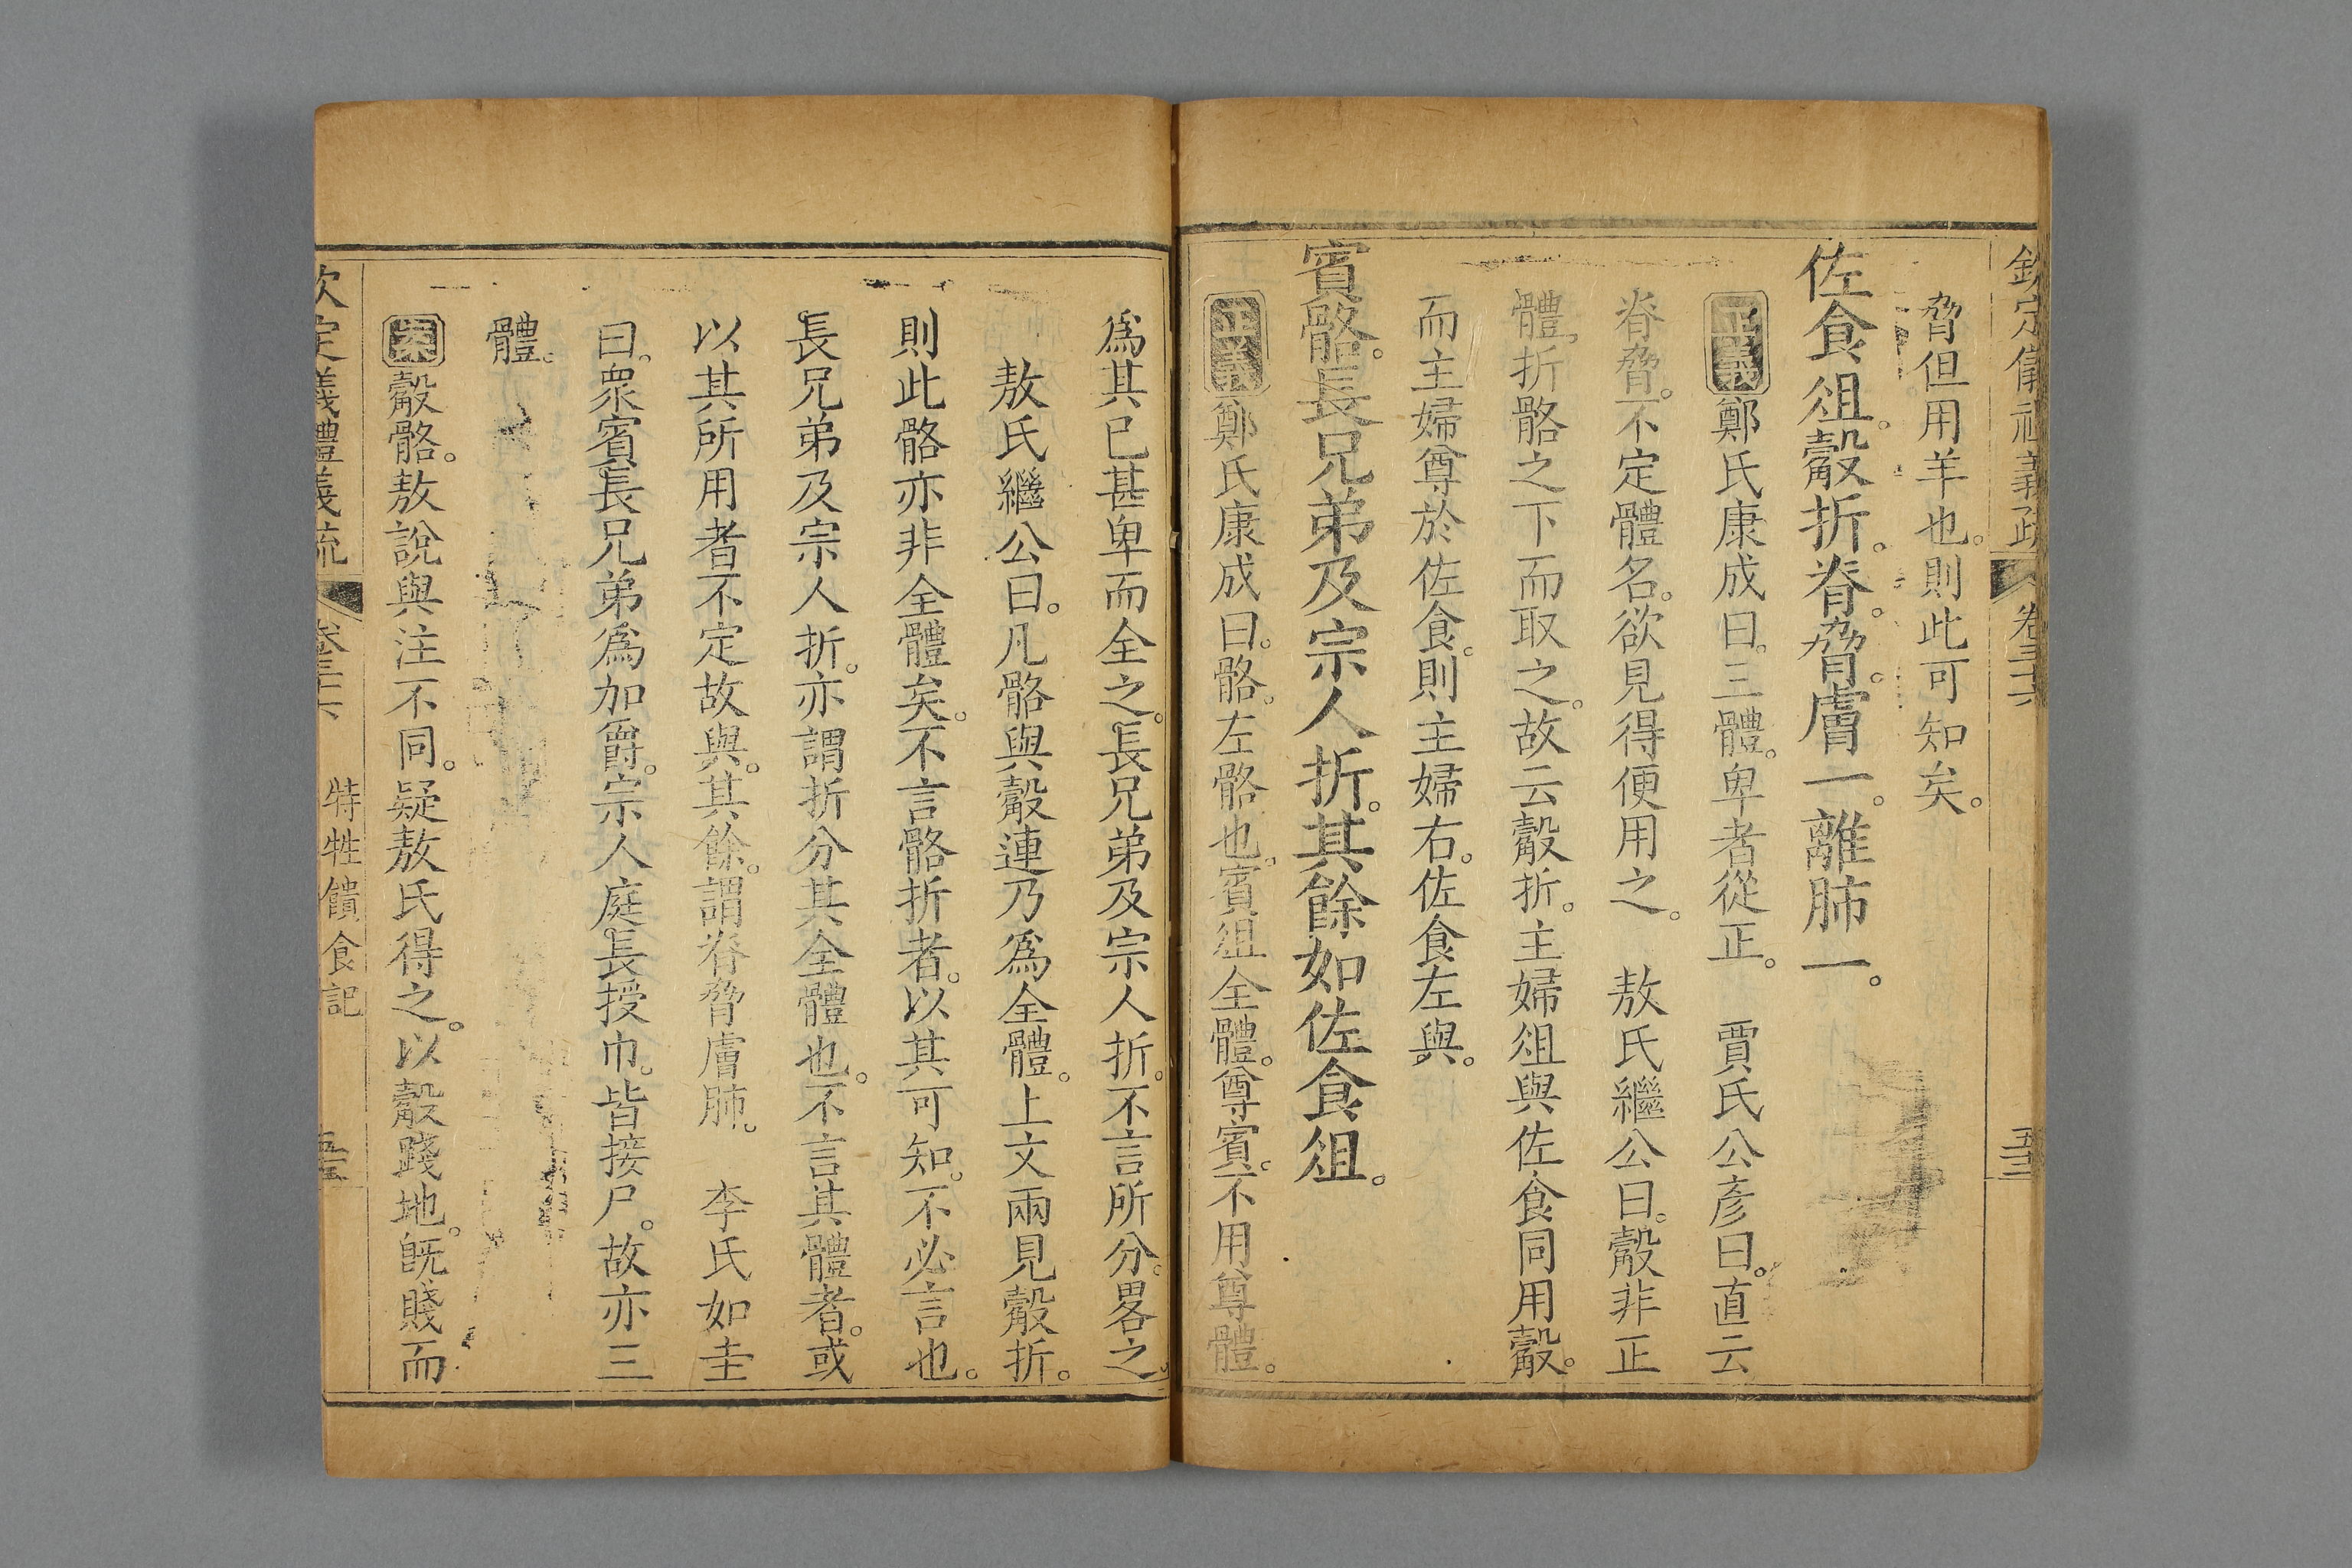 欽定儀禮義疏 卷三十六 五十三
脅但用羊也。則此可知矣。
佐食俎。觳折。脊。脅。膚一。離肺一。
正義鄭氏康成曰。三體。卑者從正。 賈氏公彥曰。直云
脊脅。不定體名。欲見得便用之。 敖氏繼公曰。觳非正
體。折骼之下而取之。故云觳折。主婦俎與佐食同用觳。
而主婦尊於佐食。則主婦右。佐食左與。
賓骼。長兄弟及宗人折。其餘如佐食俎。
正義鄭氏康成曰。骼。左骼也。賓俎全體。尊賓。不用尊體。
爲其已甚卑而全之。長兄弟及宗人折。不言所分。畧之。
敖氏繼公曰。凡骼與觳連乃爲全體。上文兩見觳折。
則此骼亦非全體矣。不言骼折者。以其可知。不必言也。
長兄弟及宗人折。亦謂折分其全體也。不言其體者。或
以其所用者不定故與。其餘。謂脊脅膚肺。 李氏如圭
曰。衆賓長兄弟爲加爵。宗人庭長授巾。皆接尸。故亦三
體。
案觳骼。敖說與注不同。疑敖氏得之。以觳踐地。旣賤而
欽定儀禮義疏 卷三十六 特牲饋食記